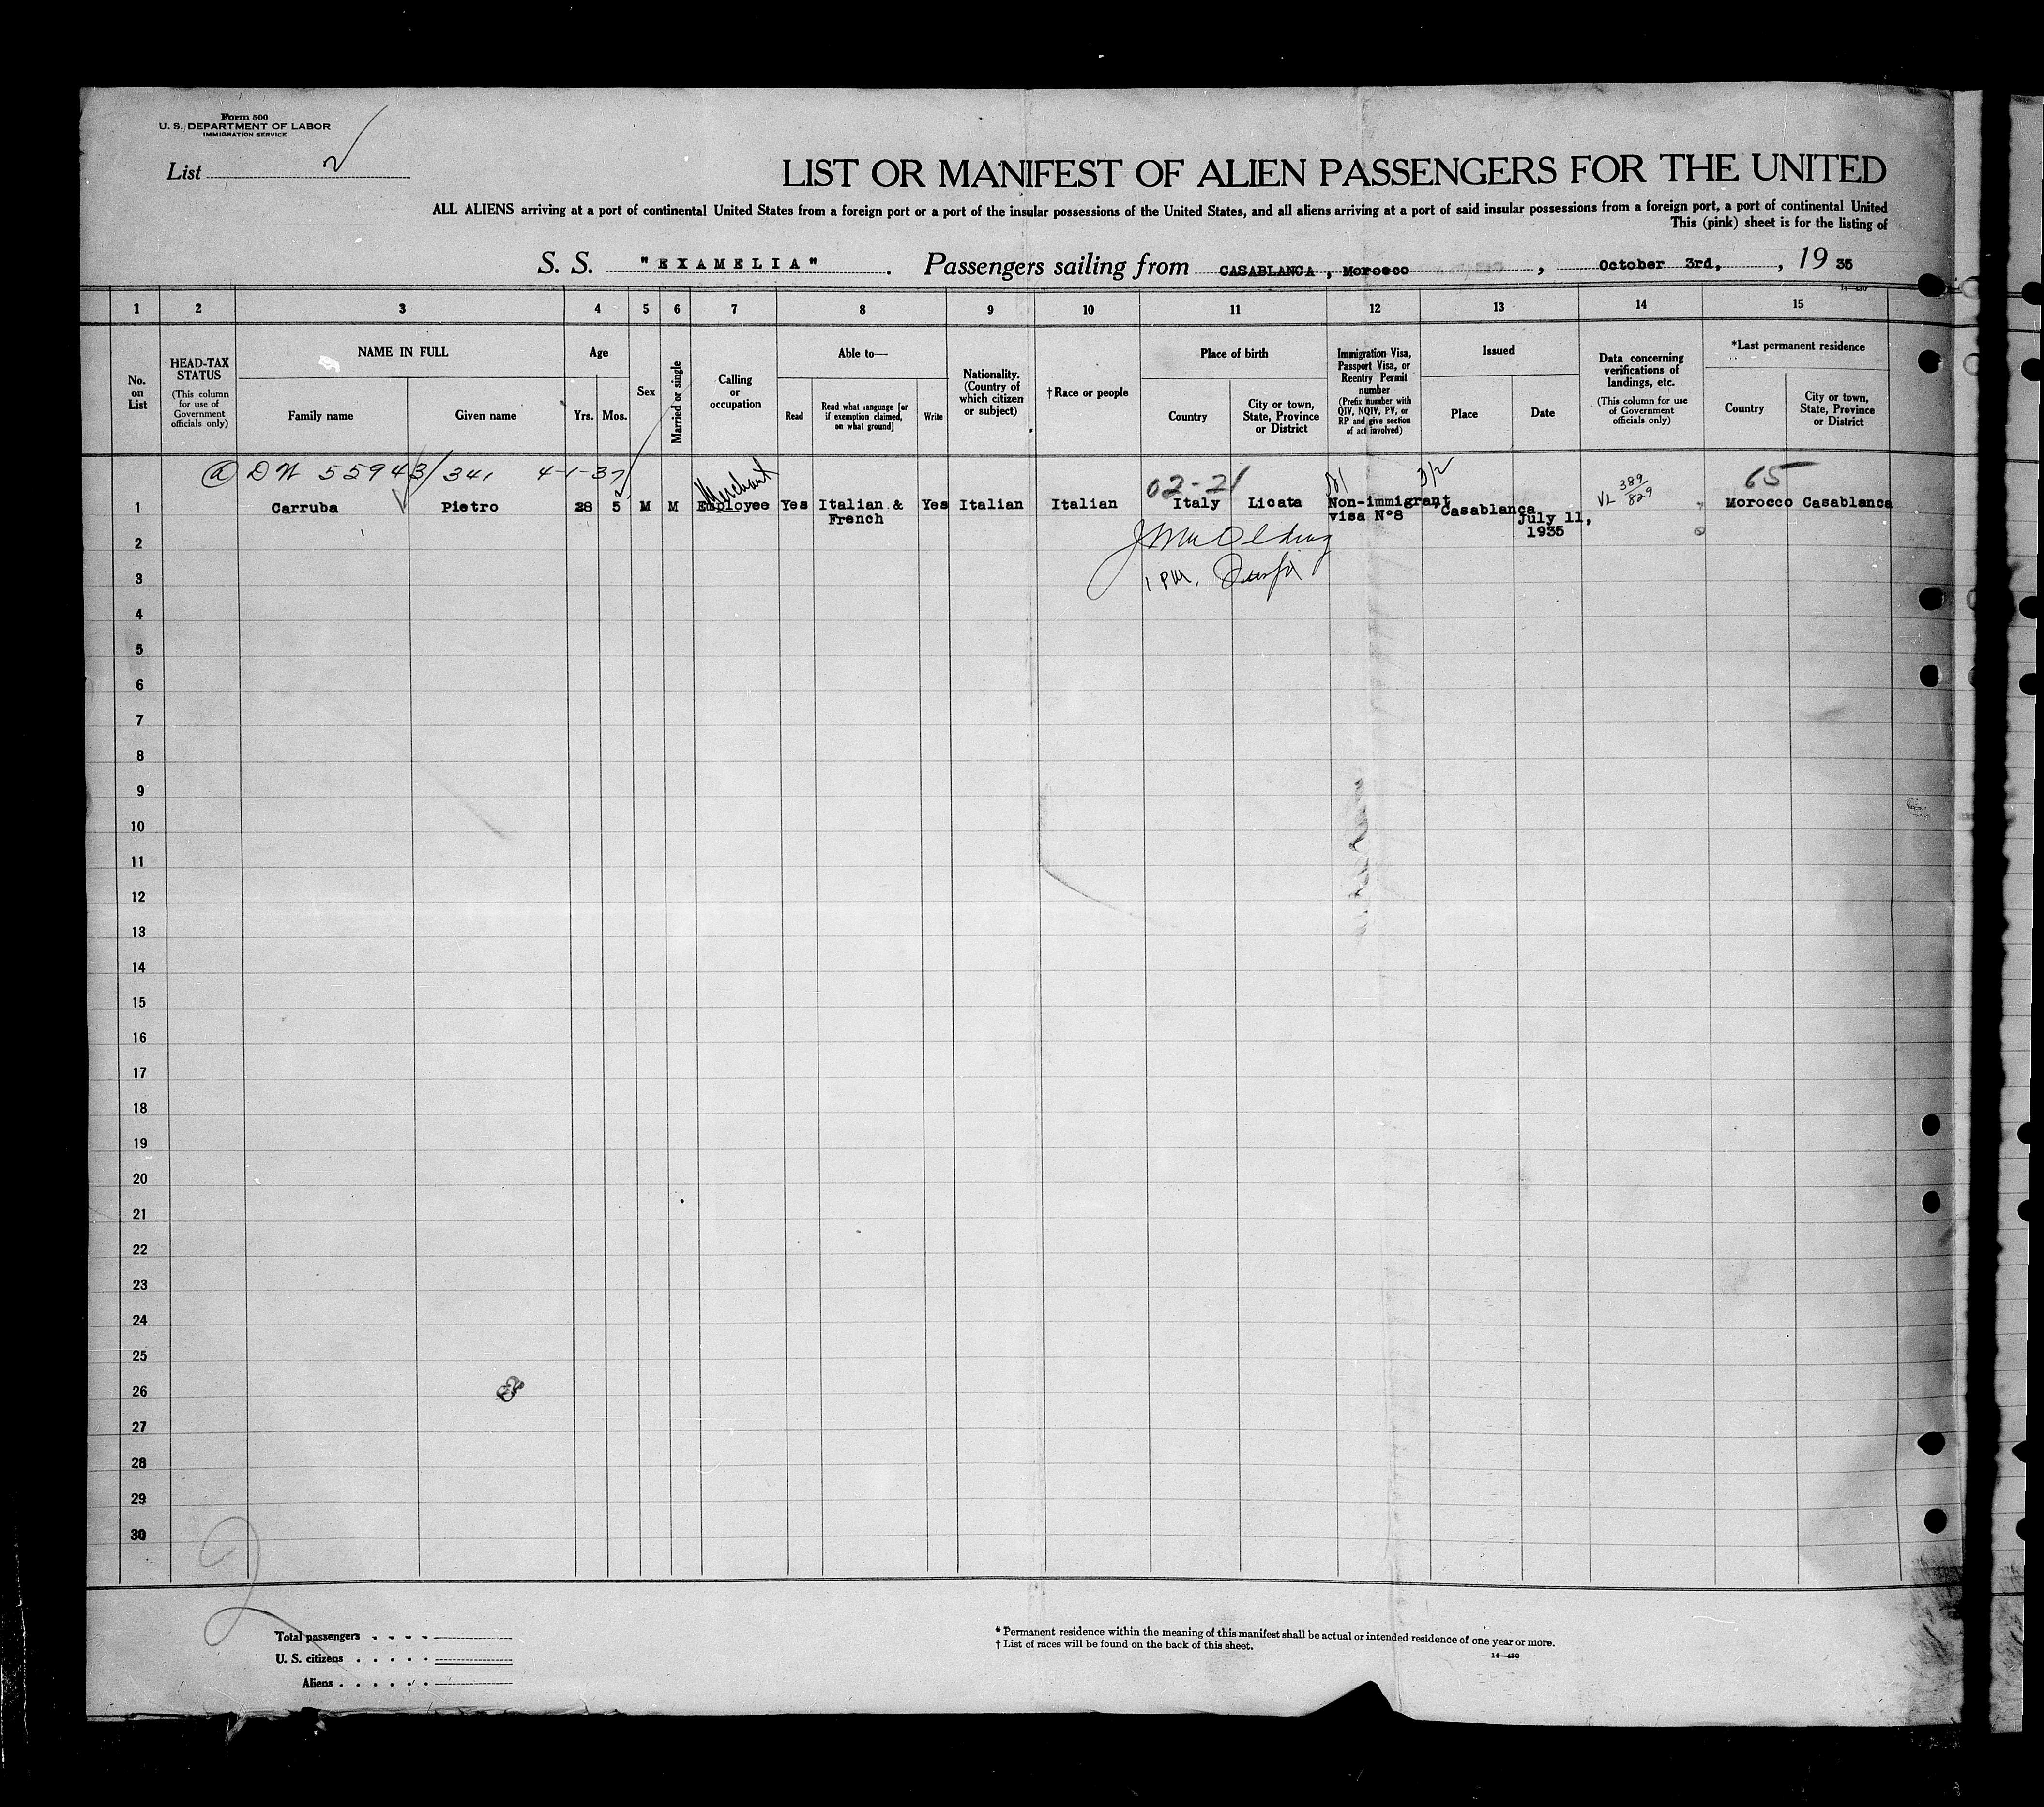 Form 500
U. S. DEPARTMENT OF LABOR
IMMIGRATION SERVICE
List 2
LIST OR MANIFEST OF ALIEN PASSENGERS FOR THE UNITED
ALL ALIENS arriving at a port of continental United States from a foreign port or a port of the insular possessions of the United States, and all aliens arriving at a port of said insular possessions from a foreign port, a port of continental United
This (pink) sheet is for the listing of
S. S. "EXAMELIA". Passengers sailing from CASABLANCA, Morocco, October 3rd, , 19 35
14—430
1 2 3 4 5 6 7 8 9 10 11 12 13 14 15
No. on List
HEAD-TAX STATUS
(This column for use of Government officials only)
NAME IN FULL
Family name
Given name
Age
Yrs.
Mos.
Sex
Married or single
Calling or occupation
Able to—
Read
Read what language [or if exemption claimed, on what ground]
Write
Nationality. (Country of which citizen or subject)
† Race or people
Place of birth
Country
City or town, State, Province or District
Immigration Visa, Passport Visa, or Reentry Permit number
(Prefix number with QIV, NQIV, PV, or RP and give section of act involved)
Issued
Place
Date
Data concerning verifications of landings, etc.
(This column for use of Government officials only)
*Last permanent residence
Country
City or town, State, Province or District
a DN 55943/341 4-1-37
Merchant
02-21
3/2
VL 389/829
65
1 Carruba Pietro 28 5 M M Employee Yes Italian & French Yes Italian Italian Italy Licata Non-immigrant visa N°8 Casablanca July 11, 1935 Morocco Casablanca
2
1 PM.
3
4
5
6
7
8
9
10
11
12
13
14
15
16
17
18
19
20
21
22
23
24
25
26
27
28
29
30
2
Total passengers
U. S. citizens
Aliens
* Permanent residence within the meaning of this manifest shall be actual or intended residence of one year or more.
† List of races will be found on the back of this sheet.
14—430